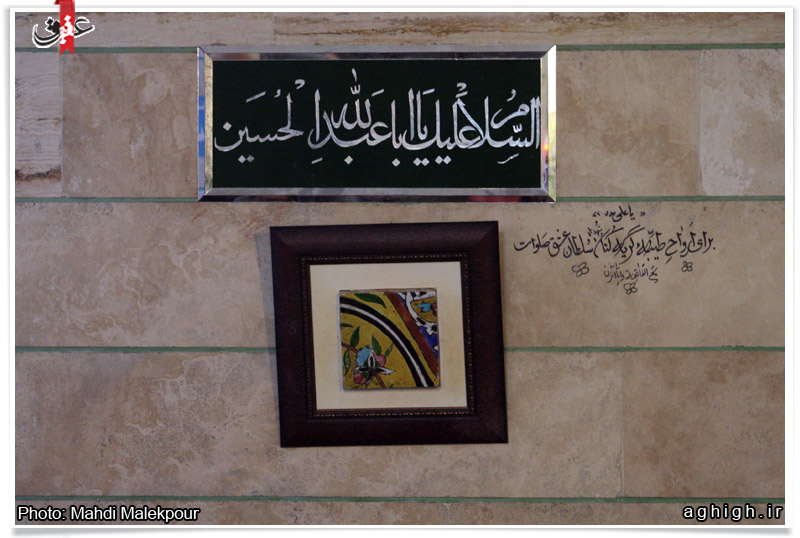 عقیق
السلام علیک یا ابا عبدالله الحسین
یا علی مدد
برای ارواح طیبه گریه کنان سلطان عشق صلوات
Photo: Mahdi Malekpour
aghigh.ir